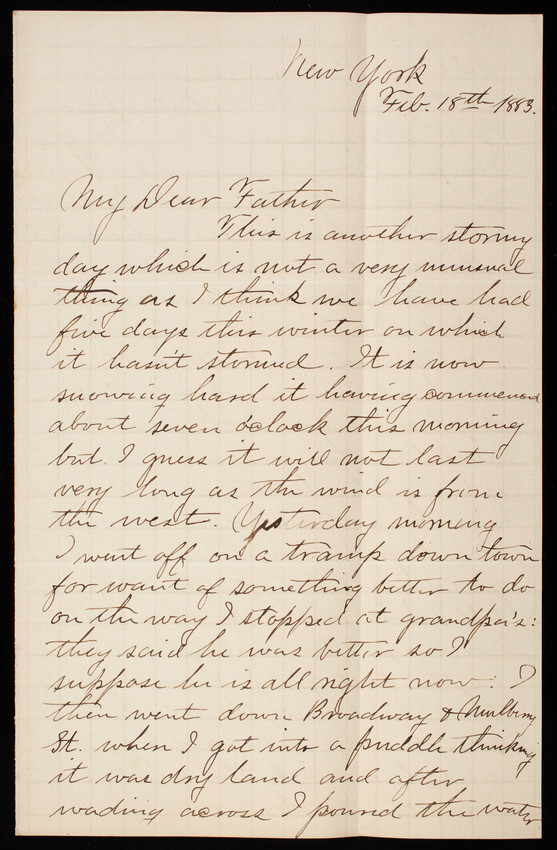 New York
Feb. 18th 1883.
My Dear Father
This is another stormy
day which is not a very unusual
thing as I think we have had
five days this winter on which
it hasn't stormed. It is now
snowing hard it having commenced
about seven o'clock this morning
but I guess it will not last
very long as the wind is from
the west. Yesterday morning
I went off on a tramp down town
for want of something better to do
on the way I stopped at grandpa's:
they said he was better so I
suppose he is all right now: I
then went down Broadway & Mulberry
St. when I got into a puddle thinking
it was dry land and after
wading across I poured the water